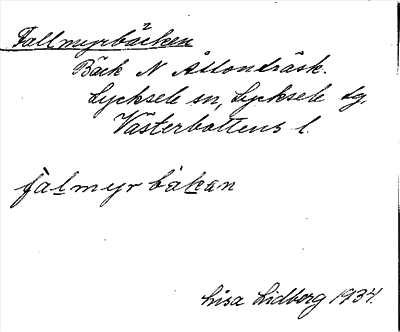 Tallmyrbäcken
Bäck N Åttonträsk.
Lycksele sn, Lycksele lg.
Västerbottens l.
fàlmyrbäkan
Lisa Lidberg 1934.